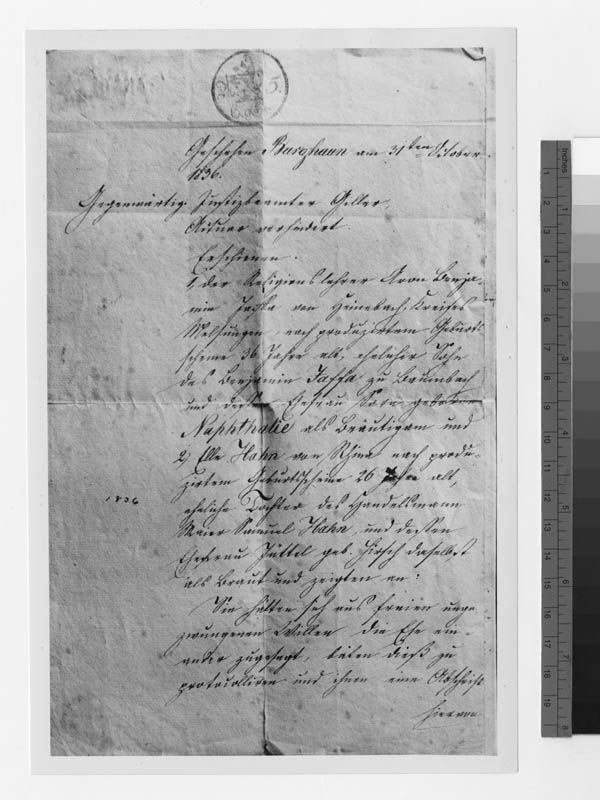 5.
Geschehen Burghaun am 31ten October
1836.
Gegenwärtig: Justizbeamter Geller,
Actuar verhindert.
Erschienen.
1, der Religionslehrer Aron Benja-
min Jaffa von Heinebach, Kreises
Melsungen, nach produzirtem Geburts
scheine 36 Jahre alt, ehelicher Sohn
des Benjamin Jaffa zu Brumbach
und dessen Ehefrau Sara geborne
Naphthalie als Bräutigam und
2, Elle Hahn von Rhina nach produ-
zirtem Geburtsscheine 26 Jahre alt,
eheliche Tochter des Handelsmann
Meier Samuel Hahn, und dessen
Ehefrau Jüttel geb. Hirsch daselbst
als Braut und zeigten an:
Sie hätten sich aus freien unge
zwungenen Willen die Ehe ein-
ander zugesagt, bäten dieß zu
protocolliren und ihnen eine Abschrift
hiervon
1836
inches
1 2 3 4 5 6 7 8
1 2 3 4 5 6 7 8 9 10 11 12 13 14 15 16 17 18 19